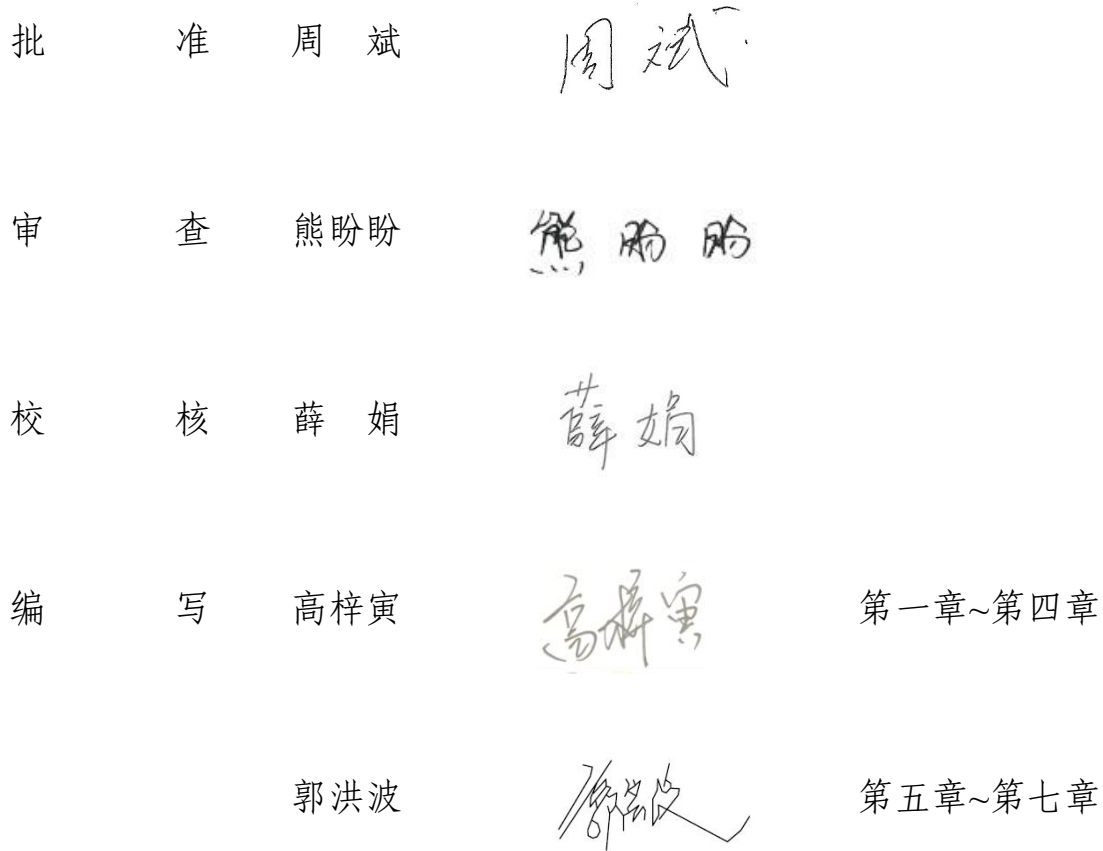 批 准 周 斌 周斌
审 查 熊盼盼 熊盼盼
校 核 薛 娟 薛娟
编 写 高梓寅 高梓寅 第一章~第四章
郭洪波 郭洪波 第五章~第七章